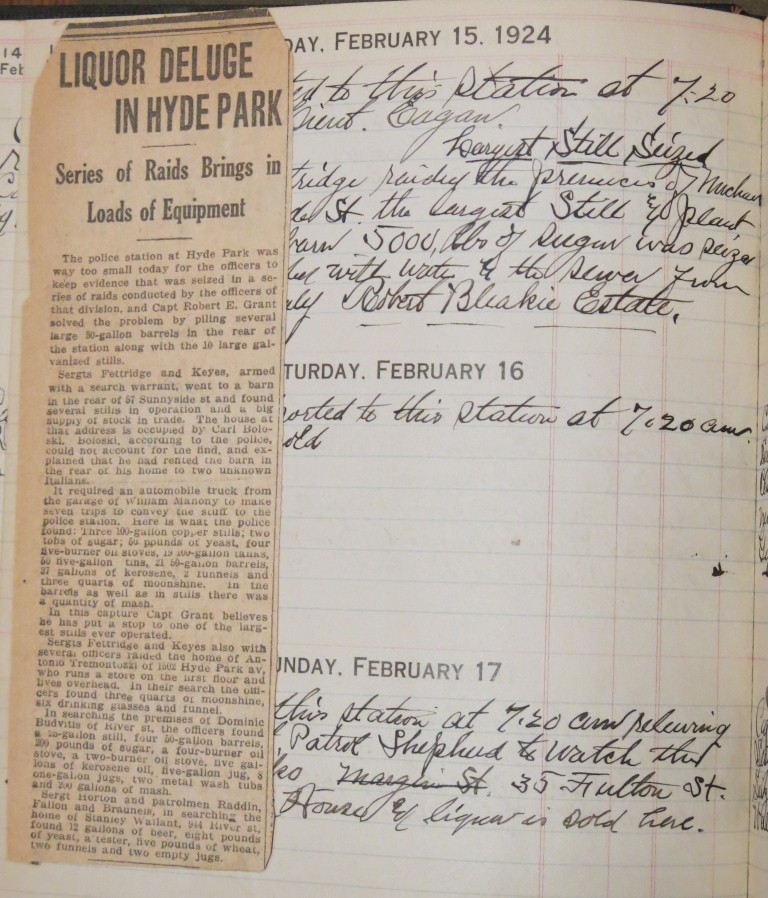 14
Feb
LIQUOR DELUGE
IN HYDE PARK
Series of Raids Brings in
Loads of Equipment
The police station at Hyde Park was
way too small today for the officers to
keep evidence that was seized in a se-
ries of raids conducted by the officers of
that division, and Capt Robert E. Grant
solved the problem by piling several
large 50-gallon barrels in the rear of
the station along with the 10 large gal-
vanized stills.
Sergts Fettridge and Keyes, armed
with a search warrant, went to a barn
in the rear of 57 Sunnyside st and found
several stills in operation and a big
supply of stock in trade. The house at
that address is occupied by Carl Bolo-
ski. Boloski, according to the police,
could not account for the find, and ex-
plained that he had rented the barn in
the rear of his home to two unknown
Italians.
It required an automobile truck from
the garage of William Mahony to make
seven trips to convey the stuff to the
police station. Here is what the police
found: Three 100-gallon copper stills; two
tons of sugar; 50 pounds of yeast, four
five-burner oil stoves, 19 100-gallon tanks,
50 five-gallon tins, 21 50-gallon barrels,
27 gallons of kerosene, 2 funnels and
three quarts of moonshine. In the
barrels as well as in stills there was
a quantity of mash.
In this capture Capt Grant believes
he has put a stop to one of the larg-
est stills ever operated.
Sergts Fettridge and Keyes also with
several officers raided the home of An-
tonio Tremontozzi of 1502 Hyde Park av,
who runs a store on the first floor and
lives overhead. In their search the offi-
cers found three quarts of moonshine,
six drinking glasses and funnel.
In searching the premises of Dominic
Budvitis of River st, the officers found
a 25-gallon still, four 50-gallon barrels,
200 pounds of sugar, a four-burner oil
stove, a two-burner oil stove, five gal-
lons of kerosene oil, five-gallon jug, 8
one-gallon jugs, two metal wash tubs
and 200 gallons of mash.
Sergt Horton and patrolmen Raddin,
Fallon and Brauneis, in searching the
home of Stanley Wallant, 944 River st,
found 12 gallons of beer, eight pounds
of yeast, a tester, five pounds of wheat,
two funnels and two empty jugs.
DAY, FEBRUARY 15, 1924
ed to this station at 7:20
Lieut. Eagan.
Largest Still Seized
tridge raided the premises of
St. the largest Still & plant
barn 5000 lbs of sugar was seized
with water to the sewer from
Robert Bleakie Estate.
TURDAY, FEBRUARY 16
orted to this station at 7.20 am.
old
UNDAY, FEBRUARY 17
this station at 7.20 am relieving
Patrol Shepherd to Watch the
Margin St. 35 Fulton St.
House & liquor is sold here.